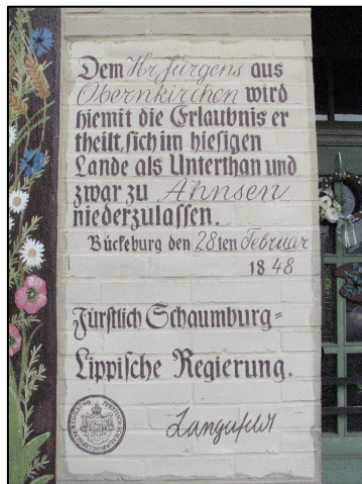 Dem Hr Jürgens aus
Obernkirchen wird
hiemit die Erlaubnis er
theilt, sich im hiesigen
Lande als Unterthan und
zwar zu Ahnsen
niederzulassen.
Bückeburg den 28ten Februar
1848
Fürstlich Schaumburg=
Lippische Regierung.
Langefeldt